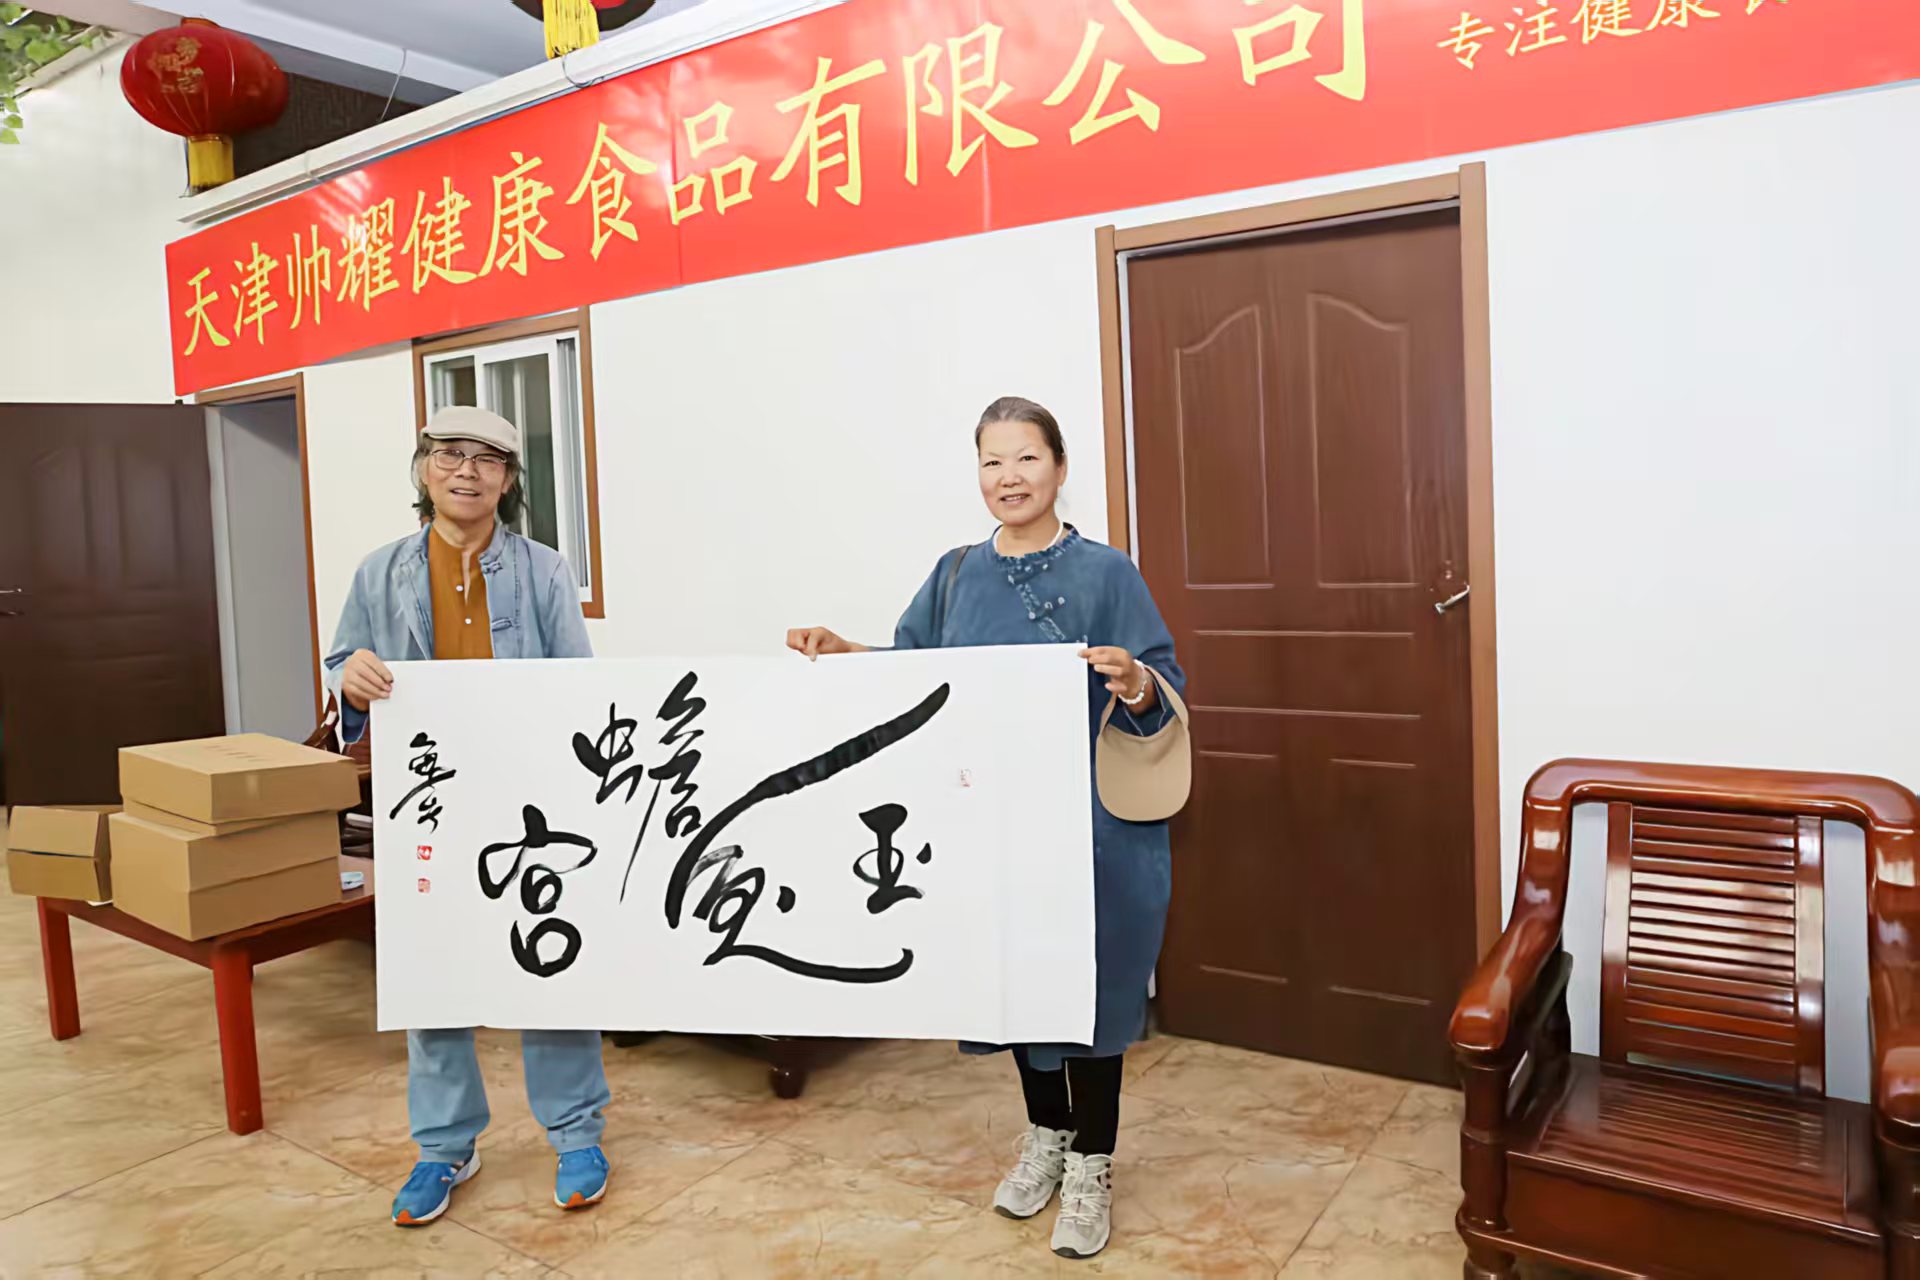 天津帅耀健康食品有限公司
专注健康食
玉兔蟾宫